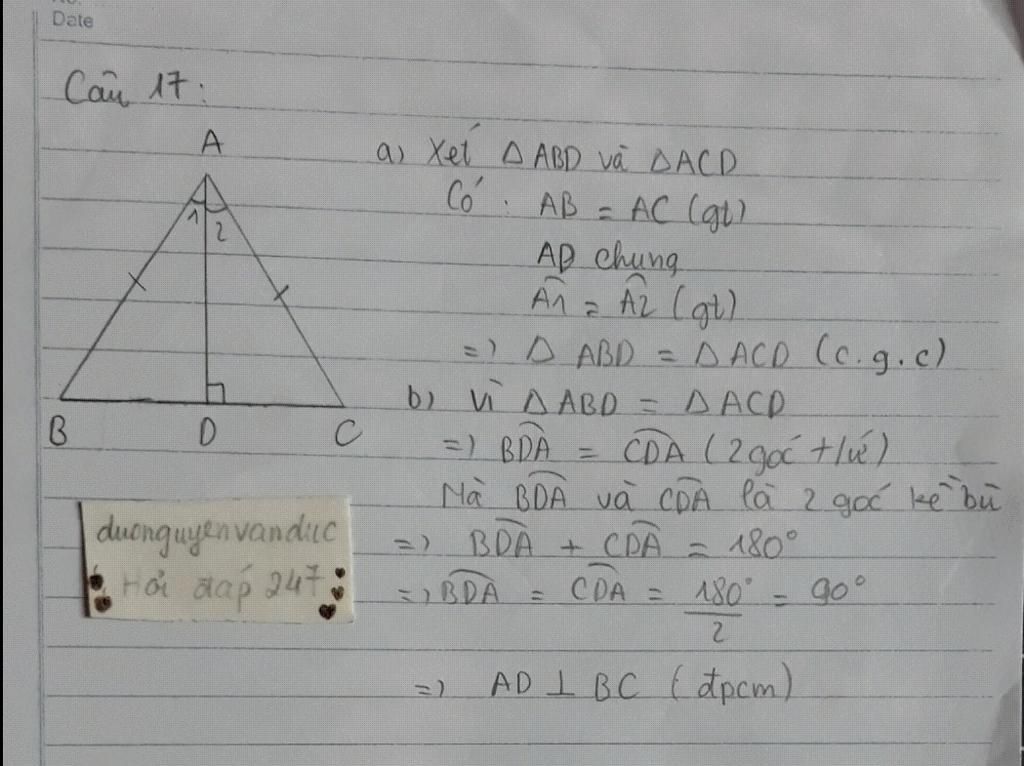 Date
Câu 17:
A
1
2
B
D
C
a) Xét △ABD và △ACD
Có : AB = AC (gt)
AD chung
Â1 = Â2 (gt)
=) △ ABD = △ ACD (c.g.c)
b) Vì △ABD = △ACD
=) BDA = CDA (2 góc t/ứ)
Mà BDA và CDA là 2 góc kề bù
=) BDA + CDA = 180°
=) BDA = CDA = 180°/2 = 90°
=) AD ⊥ BC (đpcm)
duonguyenvanduc
Hỏi đáp 247